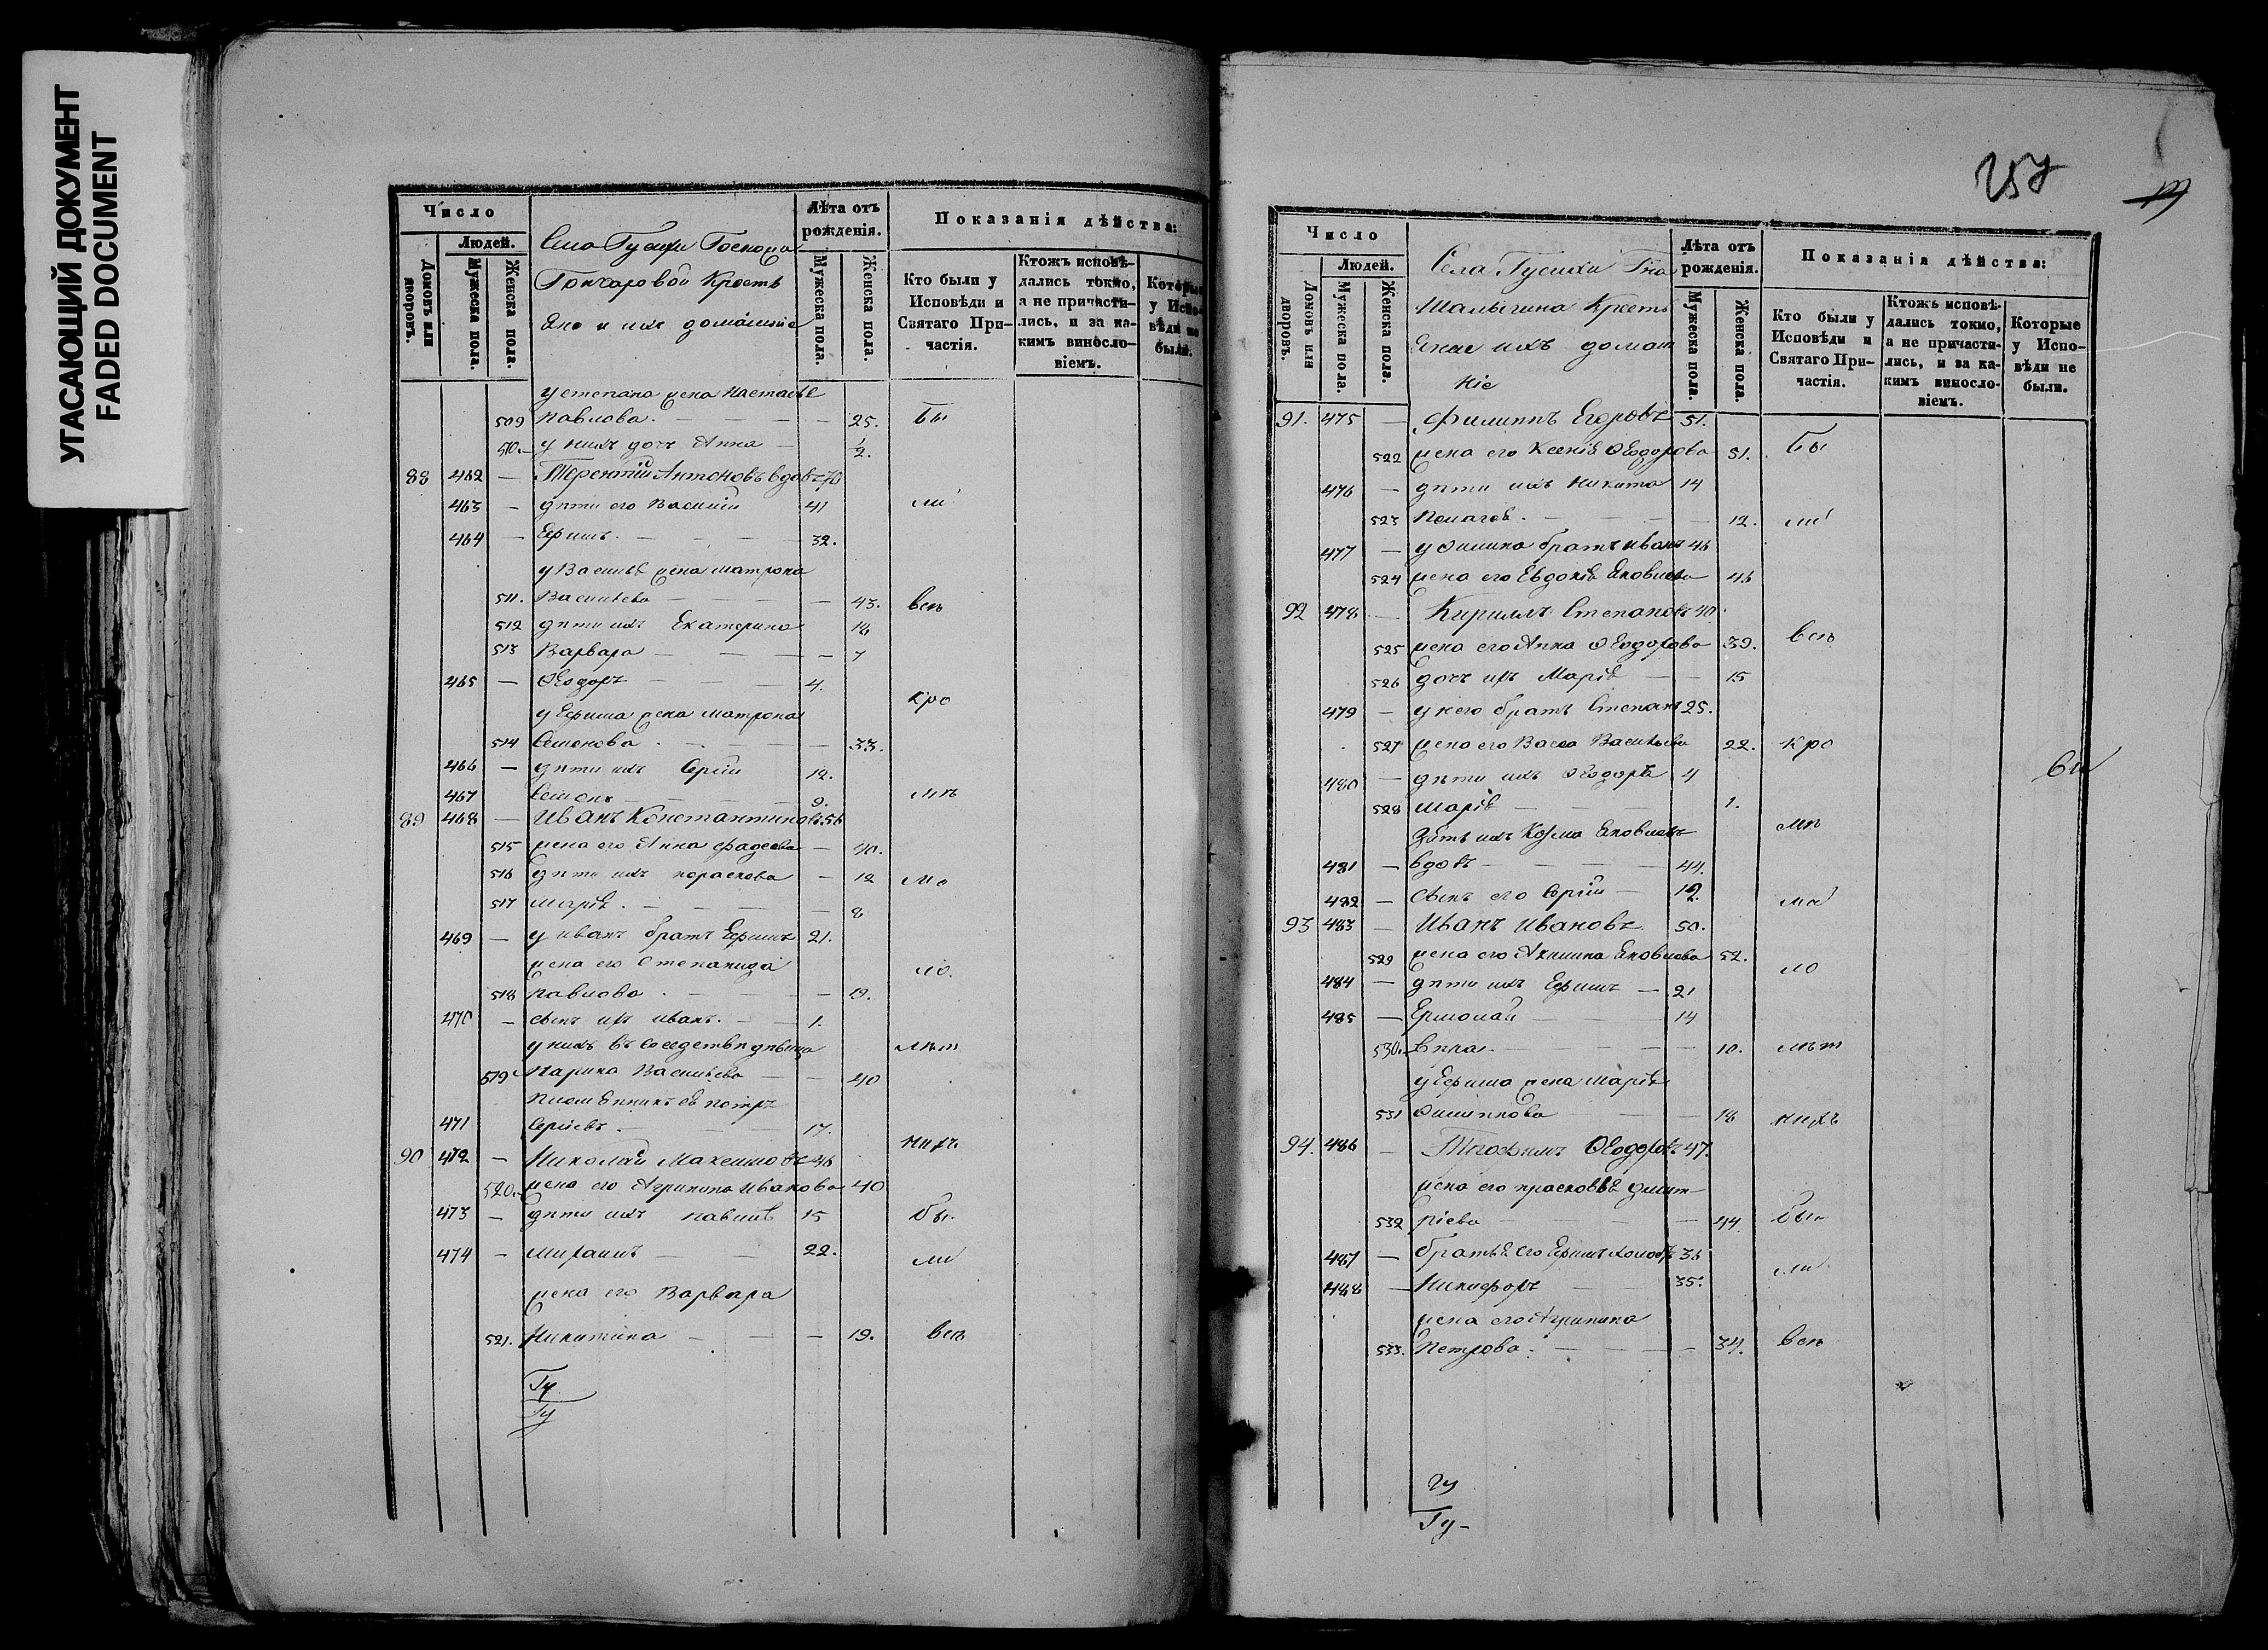 УГАСАЮЩИЙ ДОКУМЕНТ
FADED DOCUMENT
Число
Людей.
Домовъ или дворовъ.
Мужеска пола.
Женска пола.
Села Гусихи Госпожи
Гончаровой Кресть
яне и ихъ домашніе
Лѣта отъ рожденія.
Мужеска пола.
Женска пола.
Показанія дѣйства:
Кто были у Исповѣди и Святаго Причастія.
Ктожъ исповѣдались токмо, а не причастились, и за какимъ винословіемъ.
Которые у Исповѣди не были.
у степана жена настасья
509 павлова. — 25. Бы
510. у нихъ дочь Анна — 1/2.
88 462 — Терентій Антоновъ вдовъ 70
463 — дѣти его Василій 41 ли
464 — Ефимъ. — 32.
у Василья жена матрона
511. Васильева — 43. всѣ
512 дѣти ихъ Екатерина 18
513 Варвара — 7
465 — Ѳеодоръ — 4.
у Ефима жена матрона кро
514 Семенова. — 33.
466 — дѣти ихъ Сергій 12.
467 Семенъ — 9. мѣ
89 468 — Иванъ Константиновъ 56
515 жена его Анна фадеева — 40.
516 дѣти ихъ параскова — 12 ма
517 марія. — 8
469 — у иванъ братъ Ефимъ 21.
жена его Степанида ло.
518 павлова. — 19.
470 — сынъ ихъ иванъ. — 1.
у нихъ въ соседствѣ дѣвица лѣт
519 Марина Васильева — 40
племянникъ ея петръ
471 Сергіевъ. — 17. нихъ
90 472 — Николай Максимовъ 46
520. жена его Агрипина Иванова 40
473 — дѣти ихъ павилъ 15 бы.
474 — михаилъ — 22. ли
жена его Варвара
521. Никитина — 19. всѣ
Гу
Гу
257
Число
Людей.
Домовъ или дворовъ.
Мужеска пола.
Женска пола.
Села Гусихи Гна
Шалыгина Кресть
яне ихъ домаш
ніе
Лѣта отъ рожденія.
Мужеска пола.
Женска пола.
Показанія дѣйства:
Кто были у Исповѣди и Святаго Причастія.
Ктожъ исповѣдались токмо, а не причастились, и за какимъ винословіемъ.
Которые у Исповѣди не были.
91. 475 — Филиппъ Егоровъ 51.
522 жена его Ксенія Ѳеодорова 51. Бы
476 — дѣти ихъ никита 14
523 Пелагея. — 12. ли
477 — у Филипа братъ иванъ 46
524 жена его Евдокія Яковлева 43
92 478 — Кириллъ Степановъ 40.
525 жена его Анна Ѳеодорова 39. всѣ
526 дочь ихъ Марія — 15
479 — у него братъ Степанъ 25.
527 жена его Васса Васильева 22. кро
480 — дѣти ихъ Ѳеодоръ 4
528 марія — 1.
Зять ихъ Козма Яковлевъ мѣ
481 — вдовъ — 44.
482 — сынъ его Сергій — 12. ма
93 483 — Иванъ Ивановъ 50.
529 жена его Акилина Яковлева 52. ло
484 — дѣти ихъ Ефимъ — 21
485 — Ермолай — 14
530. Вѣра. — 10. лѣт
у Ефима жена марія
531 Филиппова — 18 нихъ
94. 486 — Трофимъ Ѳеодоровъ 47.
жена его прасковья дмит
532 ріева — 44. бы
487 — братья его Ефимъ холос 36
488 — Никифоръ — 35. ли
жена его Агрипина
533. Петрова. — 34. всѣ
Гу
Гу-